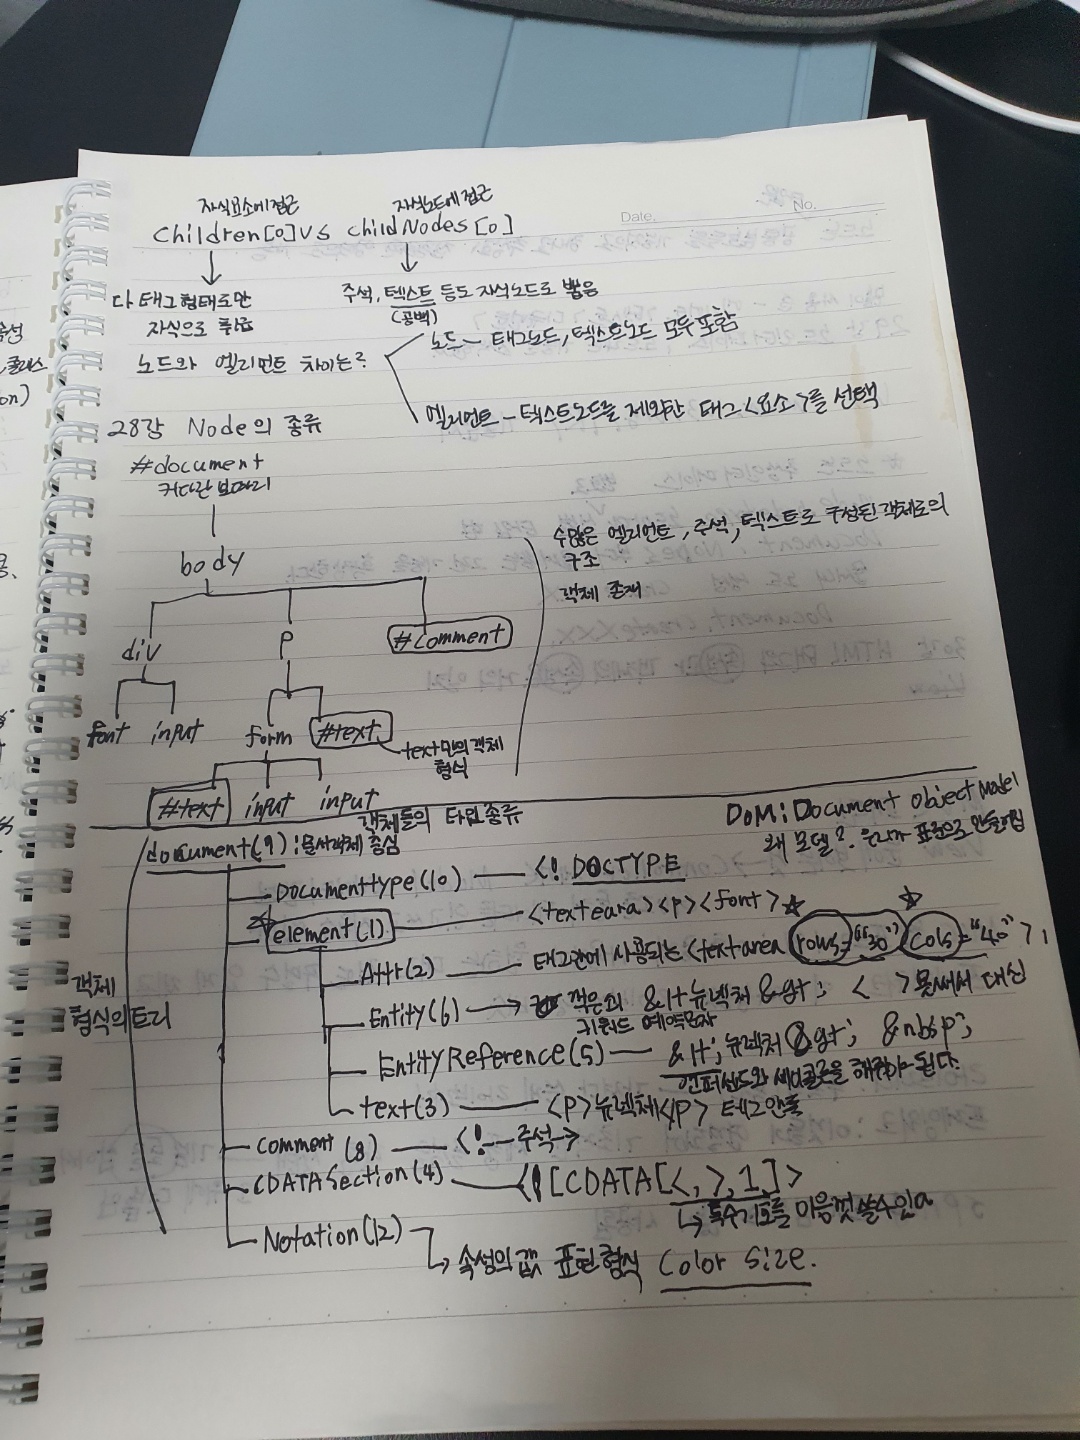 Date.
No.
자식요소에접근
자식노드에접근
children[0] vs childNodes[0]
다 태그형태로만
자식으로 취급
주석, 텍스트 등도 자식노드로 뽑음
(공백)
노드와 엘리먼트 차이는?
노드 – 태그노드, 텍스트노드 모두 포함
엘리먼트 – 텍스트노드를 제외한 태그<요소>를 선택
28강 Node의 종류
#document
커다란 보따리
body
수많은 엘리먼트, 주석, 텍스트로 구성된 객체로의
구조
객체 존재
div
p
#comment
font input
form #text
text만의 객체
형식
#text input input
객체들의 타입종류
DOM: Document object Model
왜 모델?
document(9) : 문서객체 중심
Documenttype(10) — <! DOCTYPE
element(1) — <texteara><p><font>
Attr(2) — 태그안에 사용되는 <textarea rows="30" cols="40">
객체
형식의트리
Entity(6) → 꺽은쇠 &lt 뉴렉처 &gt; < > 못써서 대신
키워드 예약문자
EntityReference(5) — &lt; 뉴렉처 &gt; &nbsp;
엔퍼센드와 세미콜론을 해줘야 된다.
text(3) — <p>뉴렉체</p> 테그안들
comment (8) — <!-- 주석->
CDATASection(4) — <![CDATA[<, >, 1]>
↳ 특수기호를 마음껏 쓸수있다
Notation(12)
↳ 속성의 값 표현형식 Color size.